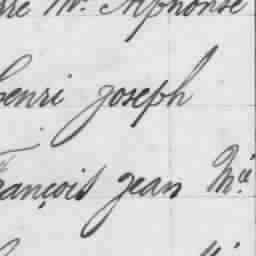 rre M. Alphonse
henri joseph
françois jean M.ie